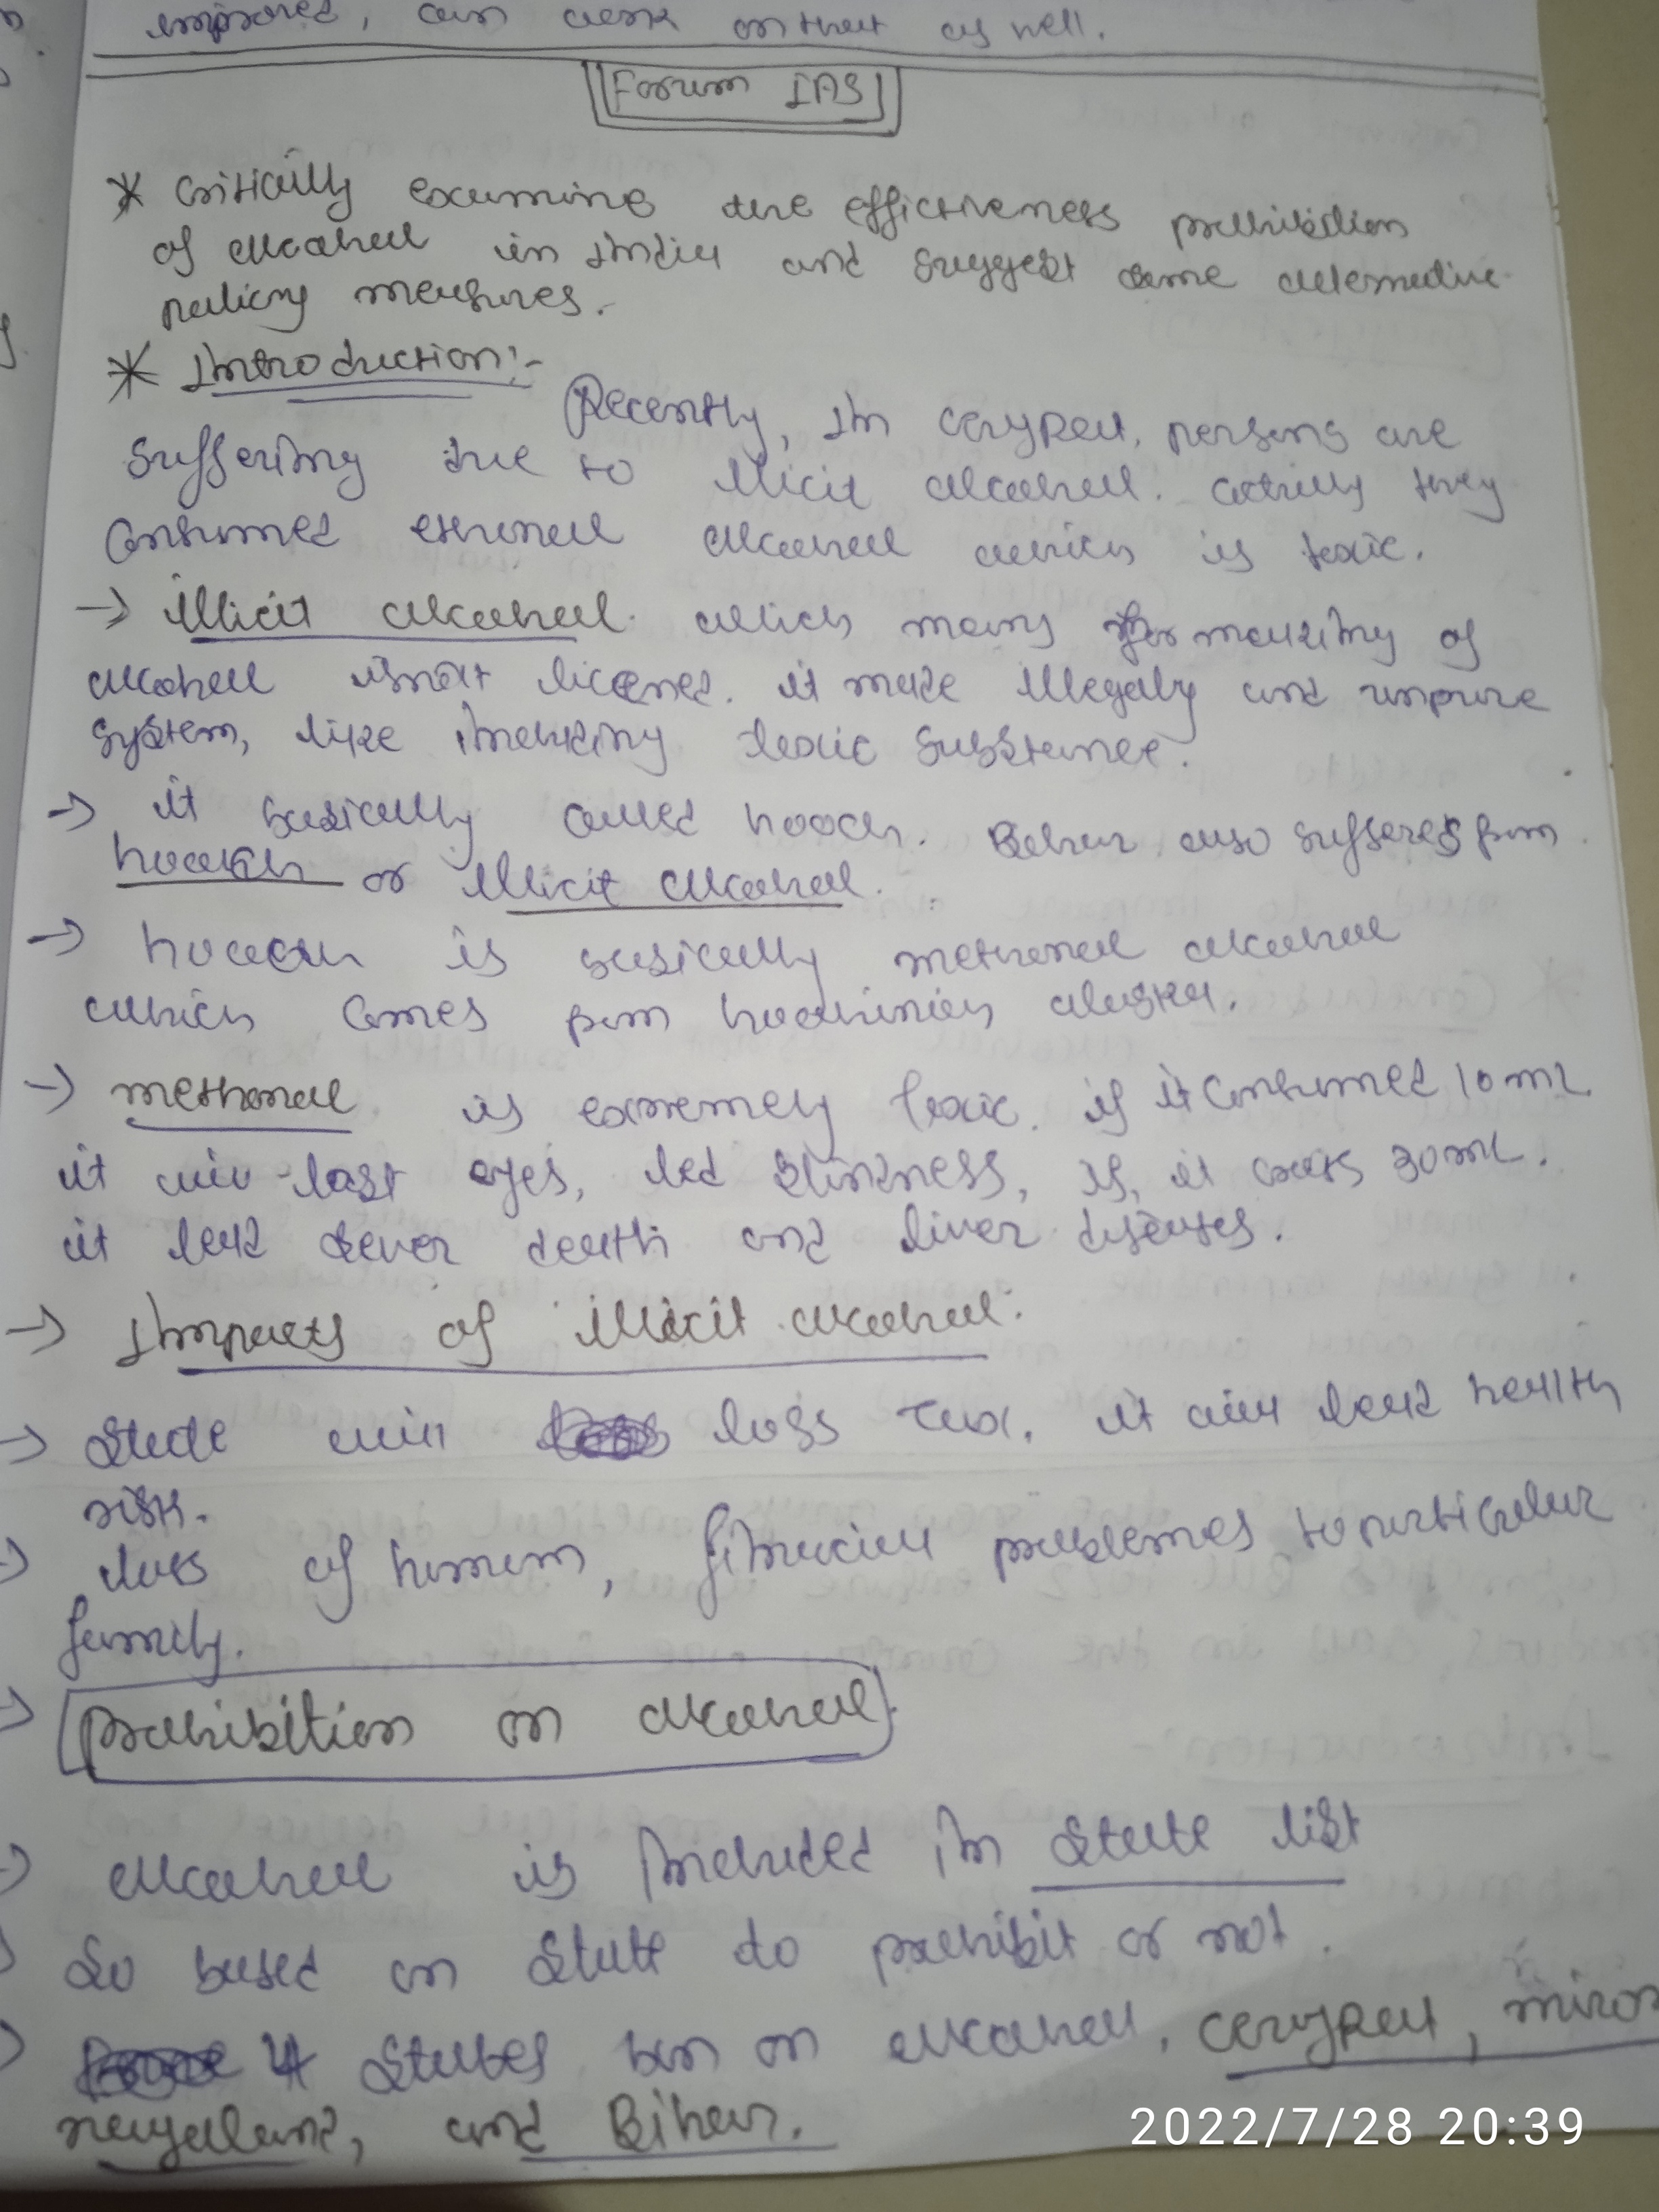 improved, can work on that as well.
Forum IAS
* Critically examine the effectiveness prohibition
of alcohol in India and suggest some alternative
policy measures.
* Introduction:-
Recently, In persons are
suffering due to illicit alcohol. they
Consumed ethonal alcohol which is toxic.
→ illicit alcohol. which many for making of
alcohol isnot licened. it made illegaly and unpure
system, like including toxic substance.
→ it basically called hooch. Bihar also suffered from
or illicit alcohol.
→ is basically methonal alcohol
which comes from
→ methonal is extremely toxic. if it consumed 10 mL
it will lost eyes, led blindness, if, it 30 mL.
it lead sever death and liver diseases.
→ Impacts of illicit alcohol:
→ State will loss tax. it will lead health
risk.
→ loss of human, financial problemes to particular
family.
→ prohibition on alcohol
→ alcohol is Included in State list
So based on State to prohibit or not.
4 States ban on alcohol, mizor
nagaland, and Bihar.
2022/7/28 20:39